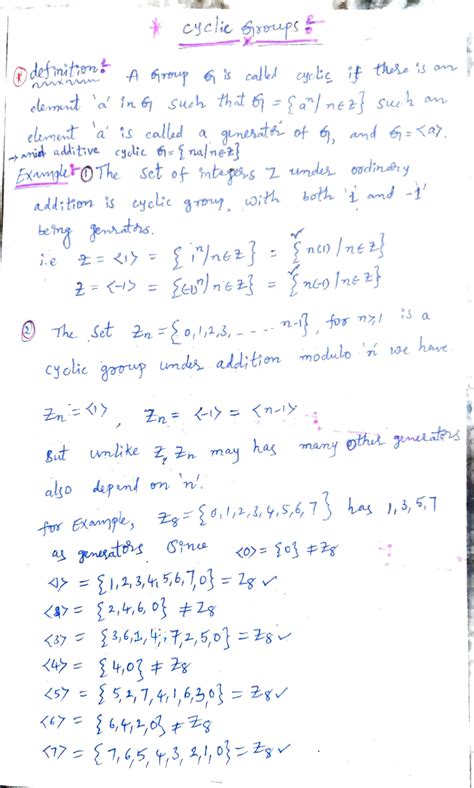 * Cyclic Groups:
* definition: A Group G is called cyclic if there is an
element 'a' in G such that G = {aⁿ / n∈Z} such an
element 'a' is called a generator of G, and G = <a>.
→ and additive cyclic G = {na/n∈Z}
Example: ① The set of integers Z under ordinary
addition is cyclic group, with both '1' and -1'
being genrators.
i.e Z = <1> = {1ⁿ/n∈Z} = {n(1) / n∈Z}
Z = <-1> = {(-1)ⁿ/n∈Z} = {n(-1) / n∈Z}
② The set Zn = {0,1,2,3, ----- n-1}, for n≥1 is a
cyclic group under addition modulo 'n' we have
Zn = <1> , Zn = <-1> = <n-1>
But unlike Z, Zn may has many other generators
also depend on 'n'.
for Example, Z8 = {0,1,2,3,4,5,6,7} has 1,3,5,7
as generators since <0> = {0} ≠ Z8
<1> = {1,2,3,4,5,6,7,0} = Z8 ✓
<2> = {2,4,6,0} ≠ Z8
<3> = {3,6,1,4,7,2,5,0} = Z8 ✓
<4> = {4,0} ≠ Z8
<5> = {5,2,7,4,1,6,3,0} = Z8 ✓
<6> = {6,4,2,0} ≠ Z8
<7> = {7,6,5,4,3,2,1,0} = Z8 ✓